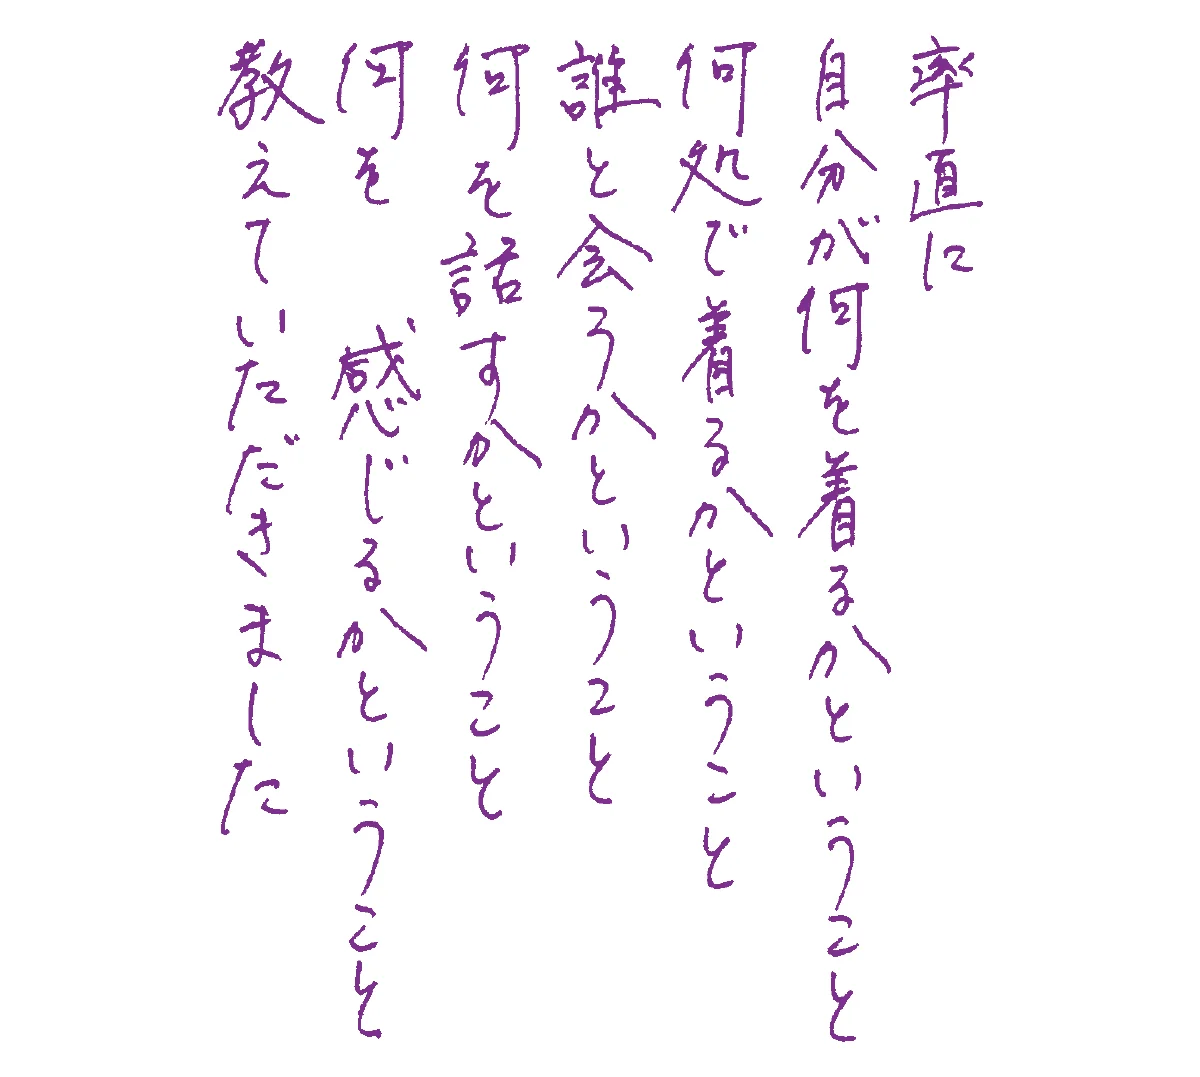 率直に
自分が何を着るかということ
何処で着るかということ
誰と会うかということ
何を話すかということ
何を 感じるかということ
教えていただきました